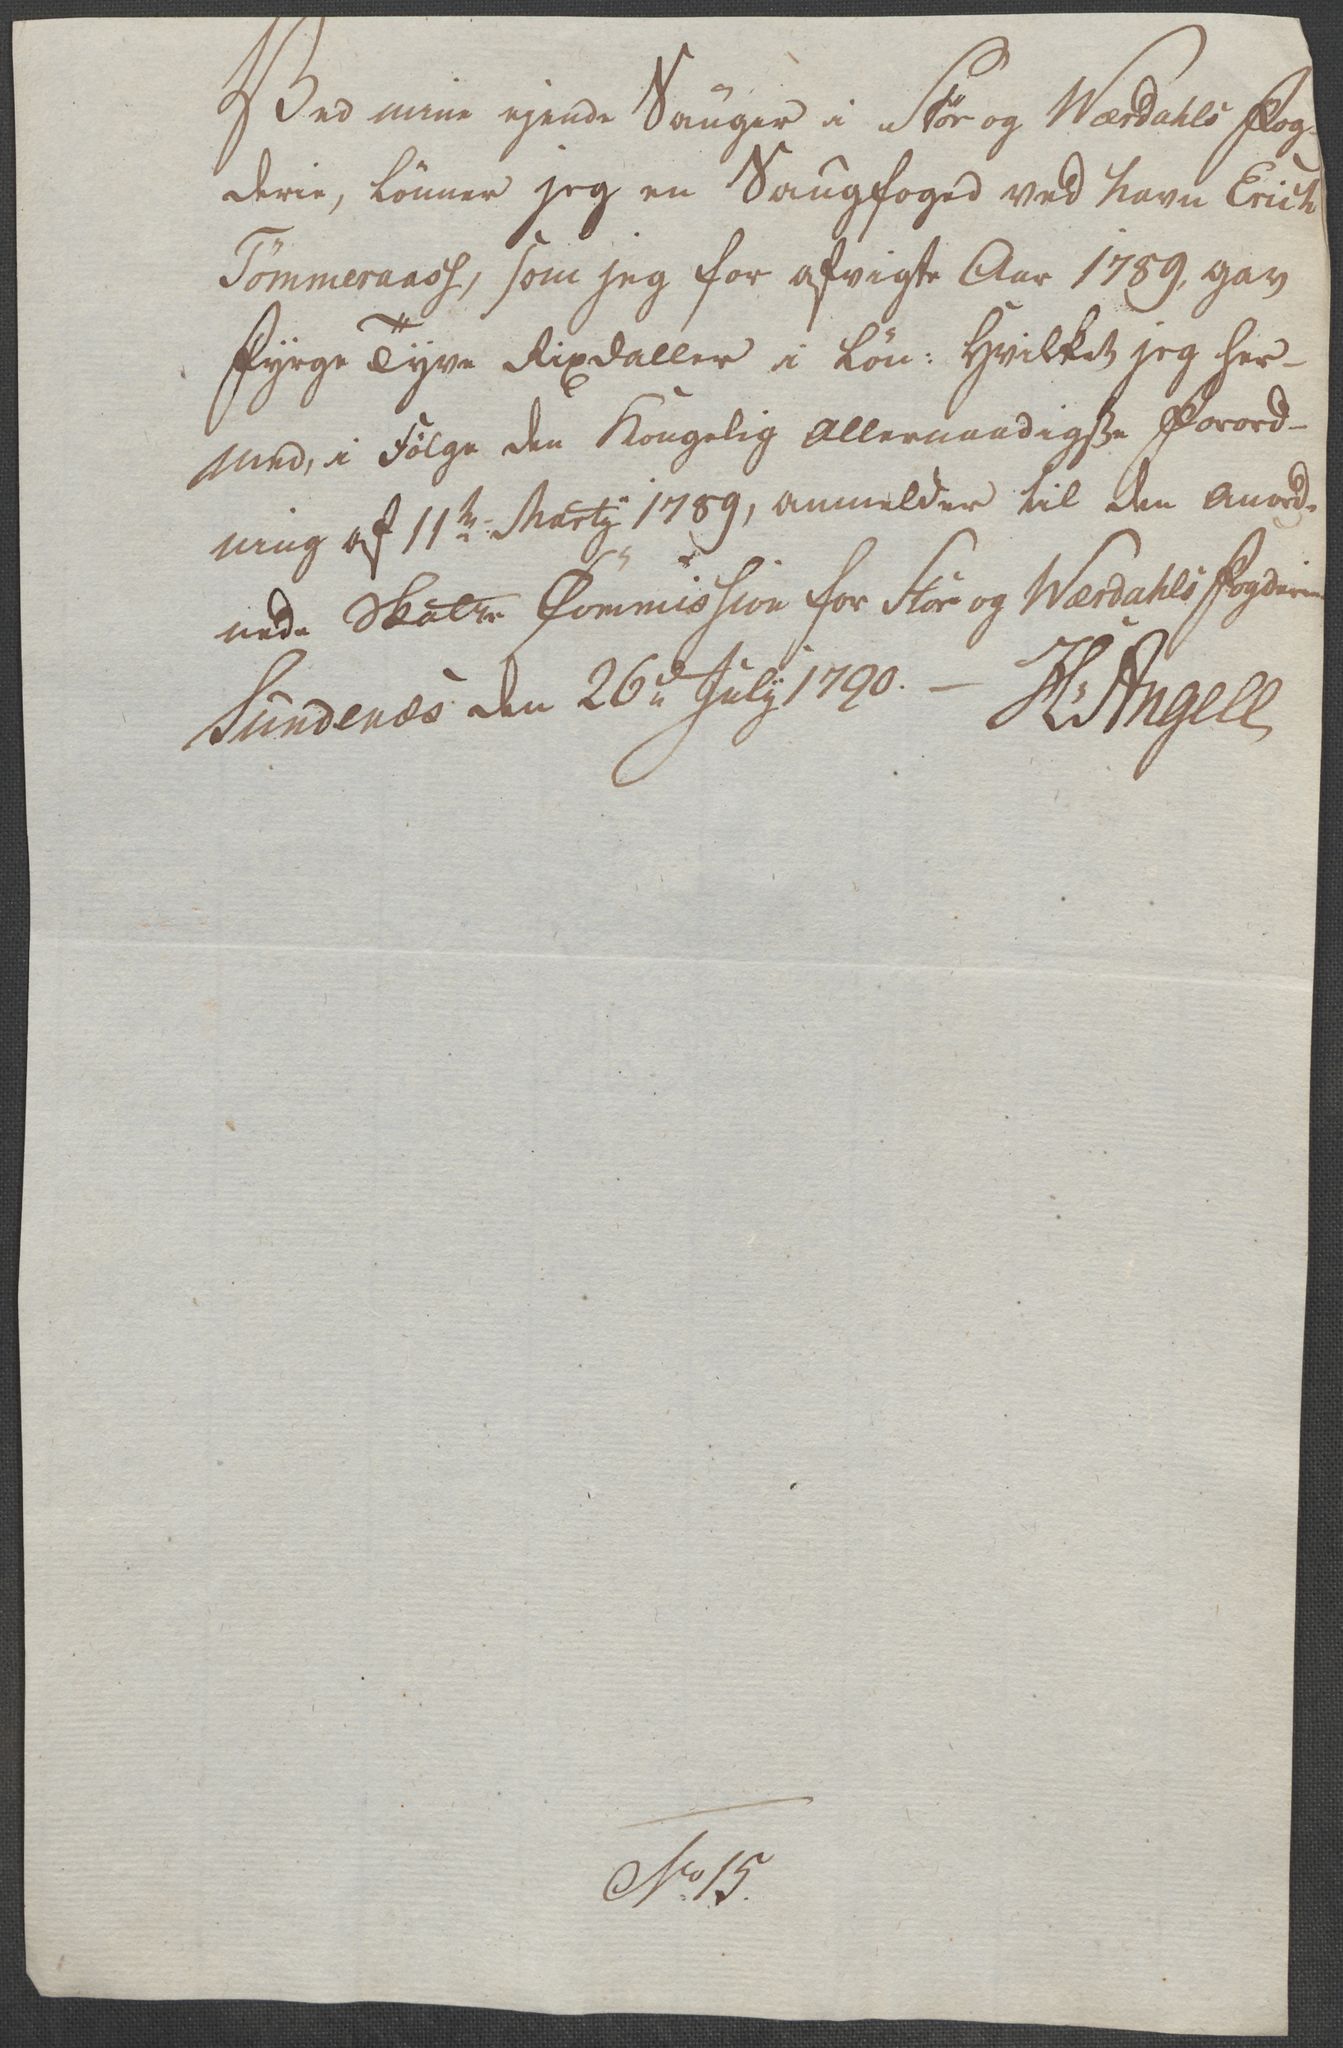 Ved mine ejende Sauger i Stör og Wærdahls Fog-
derie, lönner jeg en Saugfoged ved Navn Erich
Tömmeraass, som jeg for afvigte Aar 1789, gav
Fyrge Tyve Rixdaller i Lön: Hvilket jeg her-
med, i Fölge den Kongelig Allernaadigste Forord-
ning af 11te Martÿ 1789, anmelder til den anord-
nede Skatte Commission for Stör og Wærdahls Fogderie
Sundenæs den 26de Julÿ 1790. — H: Angell
No 15.